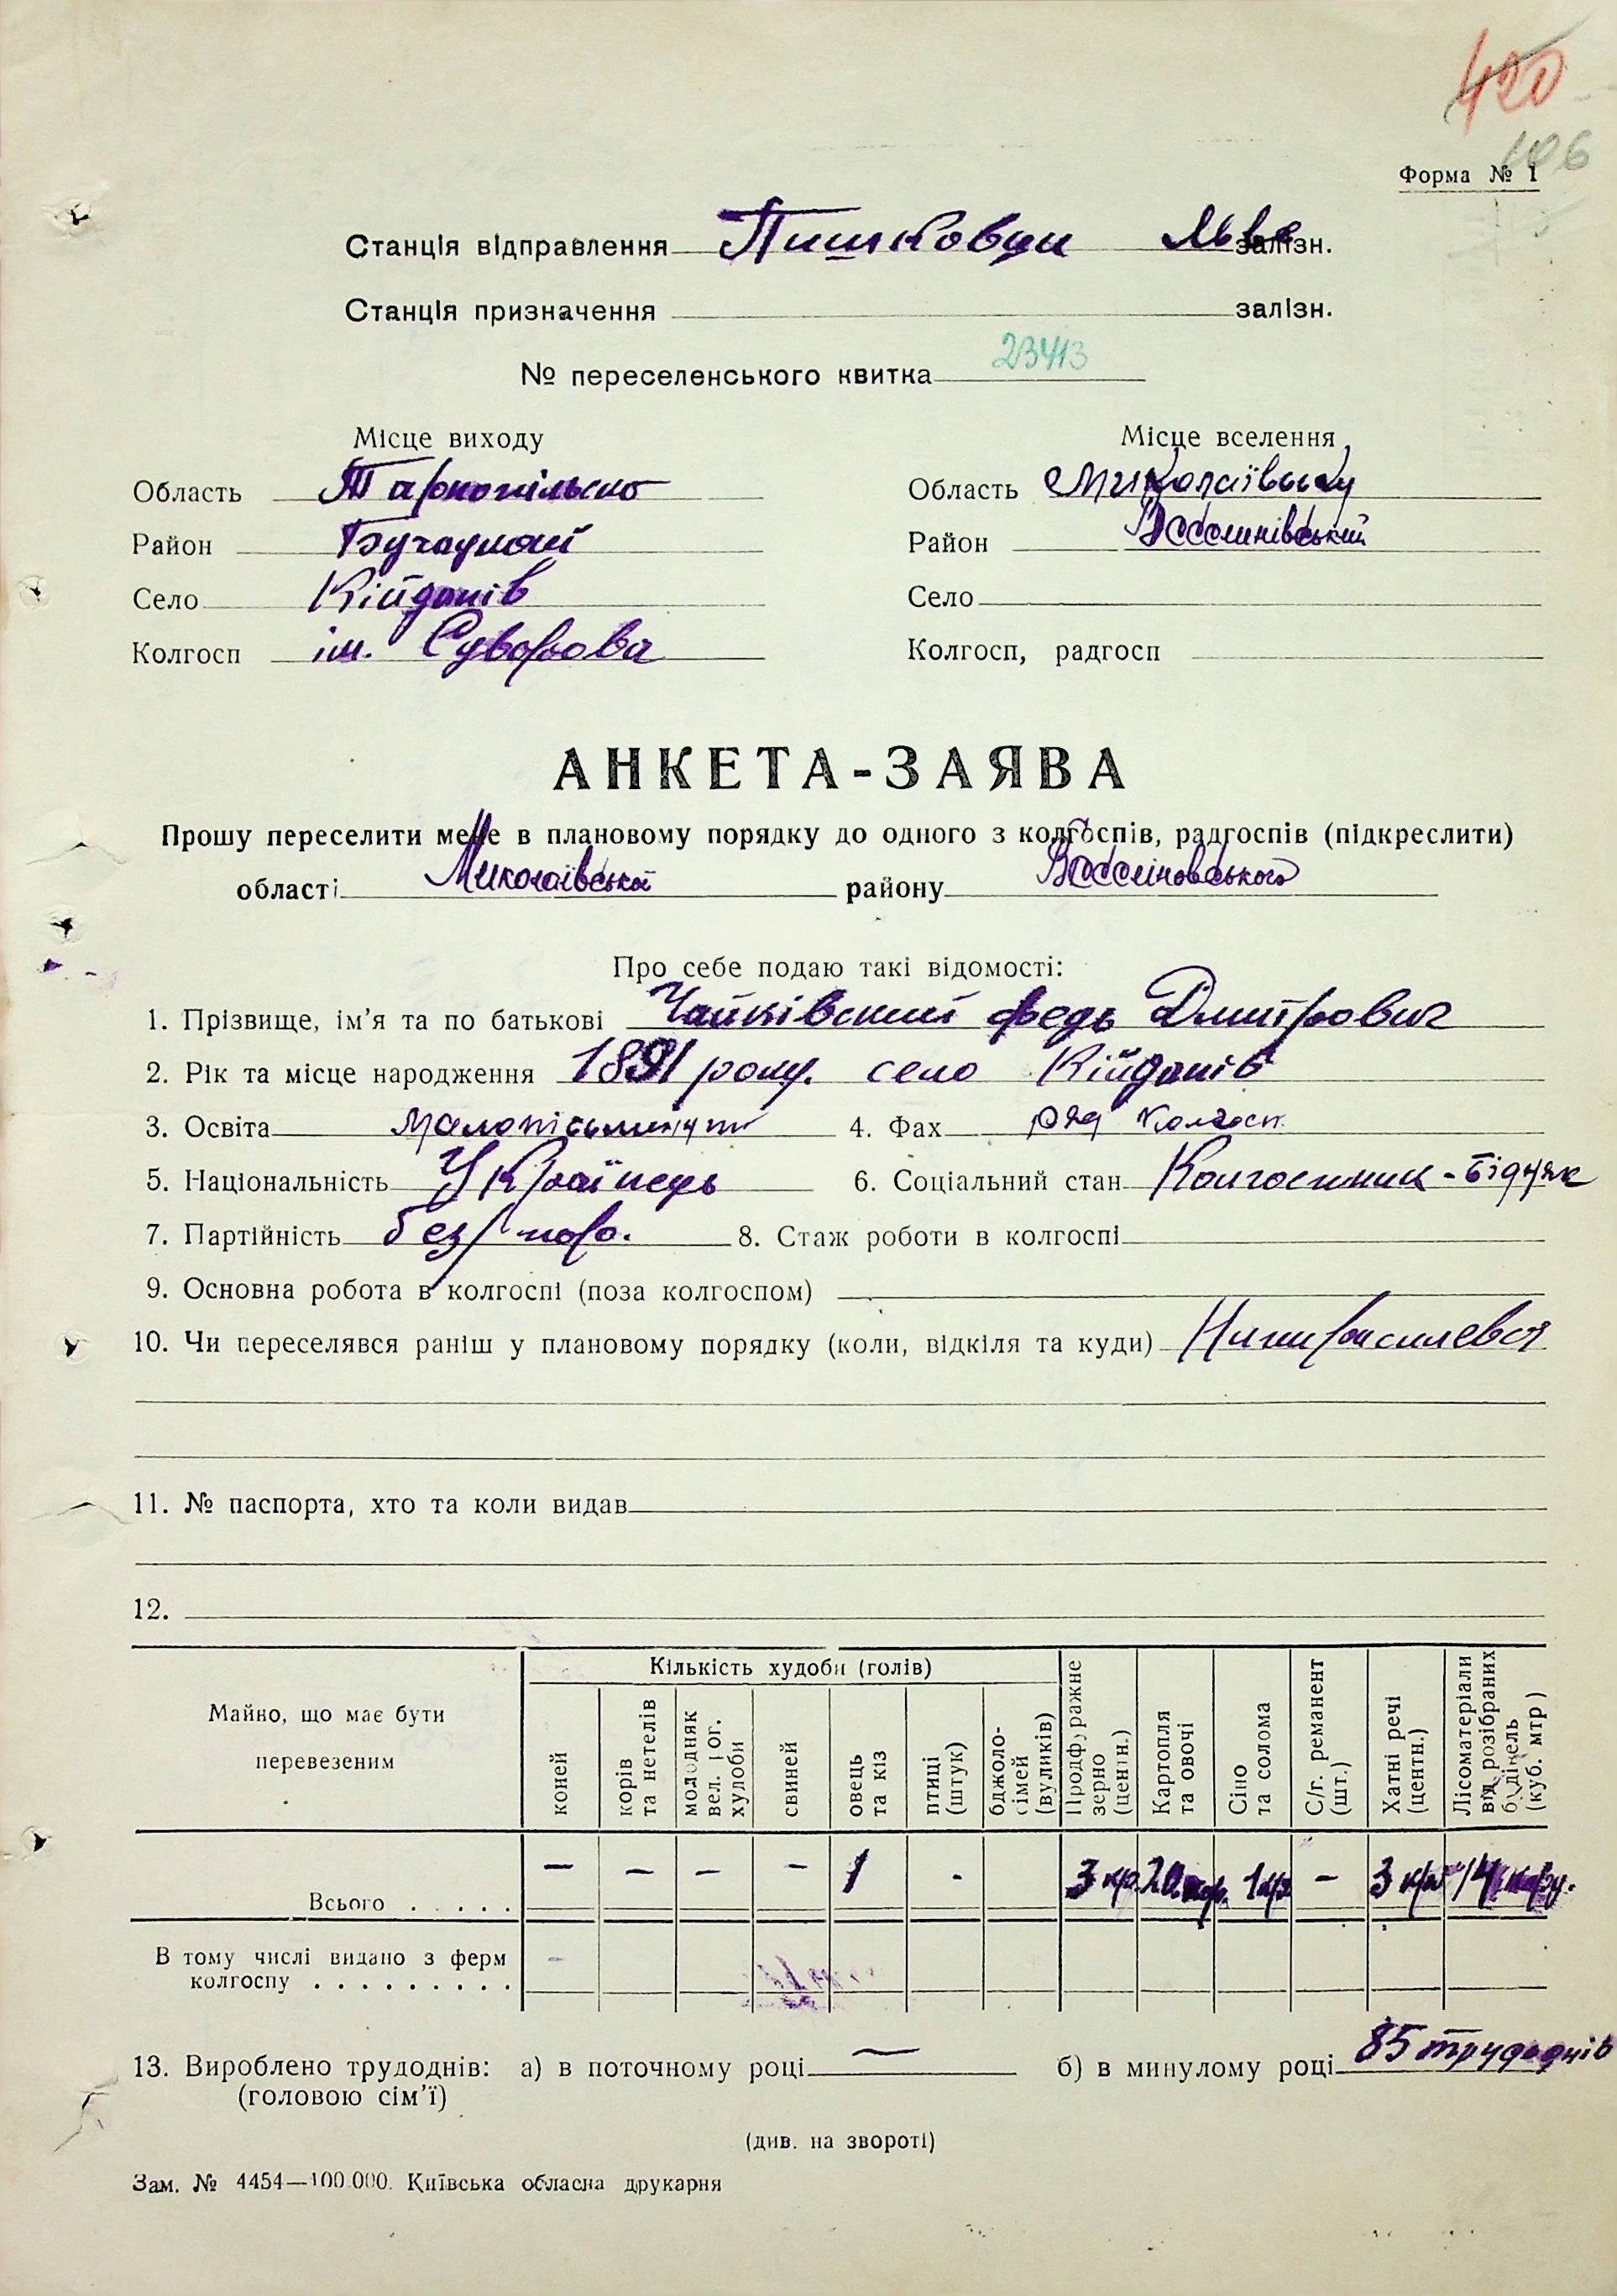 420
106
Форма № 1
Станція відправлення Пишковци Льв. залізн.
Станція призначення залізн.
№ переселенського квитка 23413
Місце виходу
Місце вселення
Область Тарнопільсько
Область Миколаївську
Район Бучацький
Район
Село Кійданів
Село
Колгосп ім. Суворова
Колгосп, радгосп
АНКЕТА-ЗАЯВА
Прошу переселити мене в плановому порядку до одного з колгоспів, радгоспів (підкреслити)
області Миколаївської району
Про себе подаю такі відомості:
1. Прізвище, ім'я та по батькові Чайківський Федь Дмитрович
2. Рік та місце народження 1891 року. село Кійданів
3. Освіта 4. Фах ряд колгосп.
5. Національність Українець 6. Соціальний стан Колгоспник - бідняк
7. Партійність без/парт. 8. Стаж роботи в колгоспі
9. Основна робота в колгоспі (поза колгоспом)
10. Чи переселявся раніш у плановому порядку (коли, відкіля та куди)
11. № паспорта, хто та коли видав
12.
Майно, що має бути перевезеним
Кількість худоби (голів)
коней
корів та нетелів
молодняк вел. рог. худоби
свиней
овець та кіз
птиці (штук)
бджоло-сімей (вуликів)
Продфуражне зерно (центн.)
Картопля та овочі
Сіно та солома
С/г. реманент (шт.)
Хатні речі (центн.)
Лісоматеріали від розібраних будівель (куб. мтр)
Всього . . . . . — — — — 1 - 3 кр. 20 1 кр. — 3 14
В тому числі видано з ферм
колгоспу . . . . . . . . . -
13. Вироблено трудоднів: а) в поточному році — б) в минулому році 85 трудоднів
(головою сім'ї)
(див. на звороті)
Зам. № 4454—100.000. Київська обласна друкарня